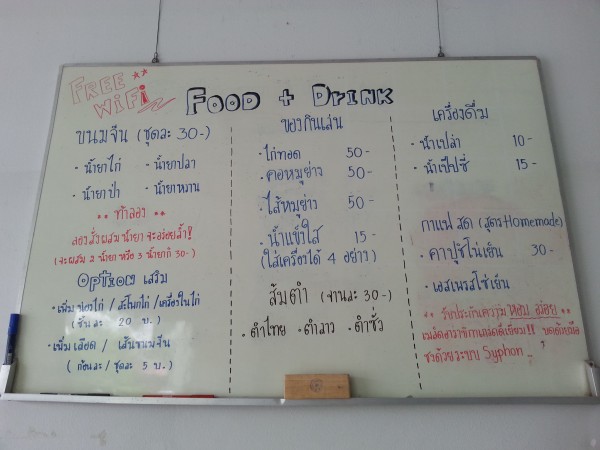 FREE WiFi
FOOD + DRINK
ขนมจีน (ชุดละ 30-)
· น้ำยาไก่ · น้ำยาปลา
· น้ำยาป่า · น้ำยาหวาน
** ท้าลอง **
ลองสั่งผสมน้ำยา จะอร่อยล้ำ!
(จะผสม 2 น้ำยา หรือ 3 น้ำยาก็ 30-)
Option เสริม
· เพิ่ม น่องไก่ / สะโพกไก่ / เครื่องในไก่
(ชิ้นละ 20 บ.)
· เพิ่มเลือด / เส้นขนมจีน
(ก้อนละ / ชุดละ 5 บ.)
ของกินเล่น
· ไก่ทอด 50-
· คอหมูย่าง 50-
· ไส้หมูย่าง 50-
· น้ำแข็งใส 15-
(ใส่เครื่องได้ 4 อย่าง)
ส้มตำ (จานละ 30-)
· ตำไทย · ตำลาว · ตำซั่ว
เครื่องดื่ม
· น้ำเปล่า 10-
· น้ำเป๊ปซี่ 15-
กาแฟสด (สูตร Homemade)
· คาปูชิโนเย็น 30-
· เอสเพรสโซ่เย็น
** รับประกันความ หอม อร่อย **
เมล็ดอาราบิก้าเกรดดีเยี่ยม!! บดด้วยมือ
ชงด้วยระบบ Syphon